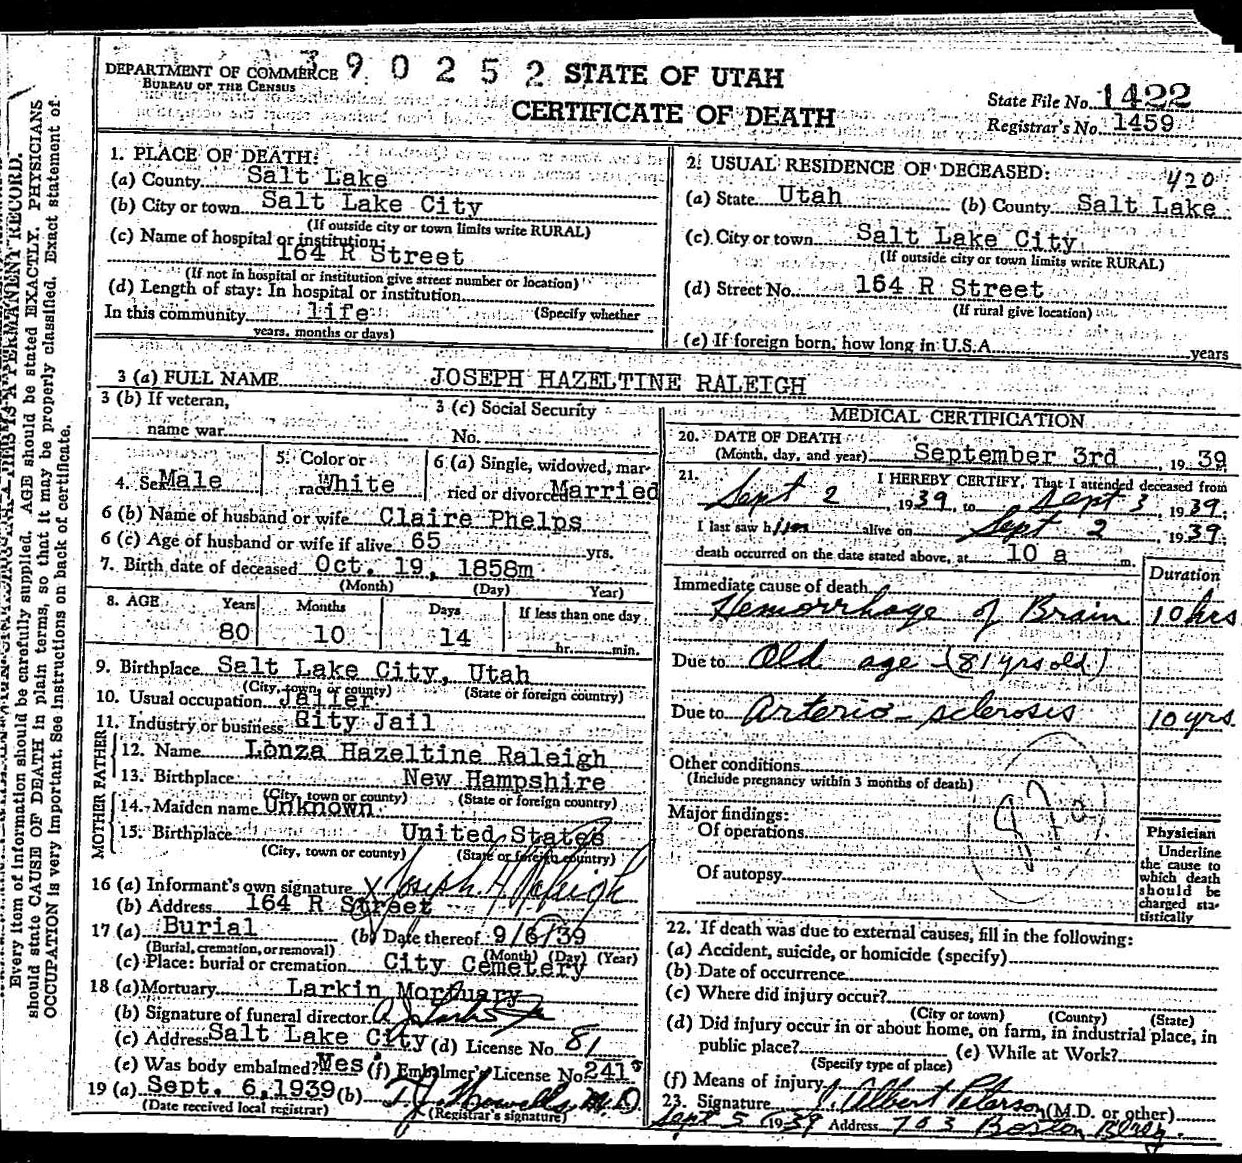 390252
DEPARTMENT OF COMMERCE
BUREAU OF THE CENSUS
STATE OF UTAH
CERTIFICATE OF DEATH
State File No. 1422
Registrar's No. 1459
Every item of information should be carefully supplied. AGE should be stated EXACTLY. PHYSICIANS
should state CAUSE OF DEATH in plain terms, so that it may be properly classified. Exact statement of
OCCUPATION is very important. See instructions on back of certificate.
1. PLACE OF DEATH:
(a) County Salt Lake
(b) City or town Salt Lake City
(If outside city or town limits write RURAL)
(c) Name of hospital or institution:
164 R Street
(If not in hospital or institution give street number or location)
(d) Length of stay: In hospital or institution
In this community life (Specify whether
years, months or days)
2. USUAL RESIDENCE OF DECEASED:
420
(a) State Utah (b) County Salt Lake
(c) City or town Salt Lake City
(If outside city or town limits write RURAL)
(d) Street No. 164 R Street
(If rural give location)
(e) If foreign born, how long in U.S.A. years
3 (a) FULL NAME JOSEPH HAZELTINE RALEIGH
3 (b) If veteran,
name war
3 (c) Social Security
No.
4. Sex Male
5. Color or
race White
6 (a) Single, widowed, mar-
ried or divorced Married
6 (b) Name of husband or wife Claire Phelps
6 (c) Age of husband or wife if alive 65 yrs.
7. Birth date of deceased Oct. 19, 1858m
(Month) (Day) Year)
8. AGE Years Months Days If less than one day
80 10 14 hr. min.
9. Birthplace Salt Lake City, Utah
(City, town, or county) (State or foreign country)
10. Usual occupation Jailer
11. Industry or business City Jail
FATHER
12. Name Lonza Hazeltine Raleigh
13. Birthplace New Hampshire
(City, town or county) (State or foreign country)
MOTHER
14. Maiden name Unknown
15. Birthplace United States
(City, town or county) (State or foreign country)
16 (a) Informant's own signature X Joseph H Raleigh
(b) Address 164 R Street
17 (a) Burial (b) Date thereof 9/6/39
(Burial, cremation, or removal) (Month) (Day) (Year)
(c) Place: burial or cremation City Cemetery
18 (a) Mortuary Larkin Mortuary
(b) Signature of funeral director
(c) Address Salt Lake City (d) License No. 81
(e) Was body embalmed? Mes (f) Embalmer's License No. 241
19 (a) Sept. 6, 1939 (b) M.D.
(Date received local registrar) (Registrar's signature)
MEDICAL CERTIFICATION
20. DATE OF DEATH
(Month, day, and year) September 3rd, 1939
21. I HEREBY CERTIFY, That I attended deceased from
Sept 2, 1939, to Sept 3, 1939.
I last saw him alive on Sept 2, 1939;
death occurred on the date stated above, at 10 a m.
Duration
Immediate cause of death
Hemorrhage of Brain 10 hrs
Due to Old age (81 yrs old)
Due to Arterio-sclerosis 10 yrs.
Other conditions
(Include pregnancy within 3 months of death)
Major findings:
Of operations
Of autopsy
Physician
Underline
the cause to
which death
should be
charged sta-
tistically
22. If death was due to external causes, fill in the following:
(a) Accident, suicide, or homicide (specify)
(b) Date of occurrence
(c) Where did injury occur?
(City or town) (County) (State)
(d) Did injury occur in or about home, on farm, in industrial place, in
public place? (e) While at Work?
(Specify type of place)
(f) Means of injury
23. Signature Albert Peterson (M.D. or other)
Sept 5 1939 Address 703 Boston Bldg.